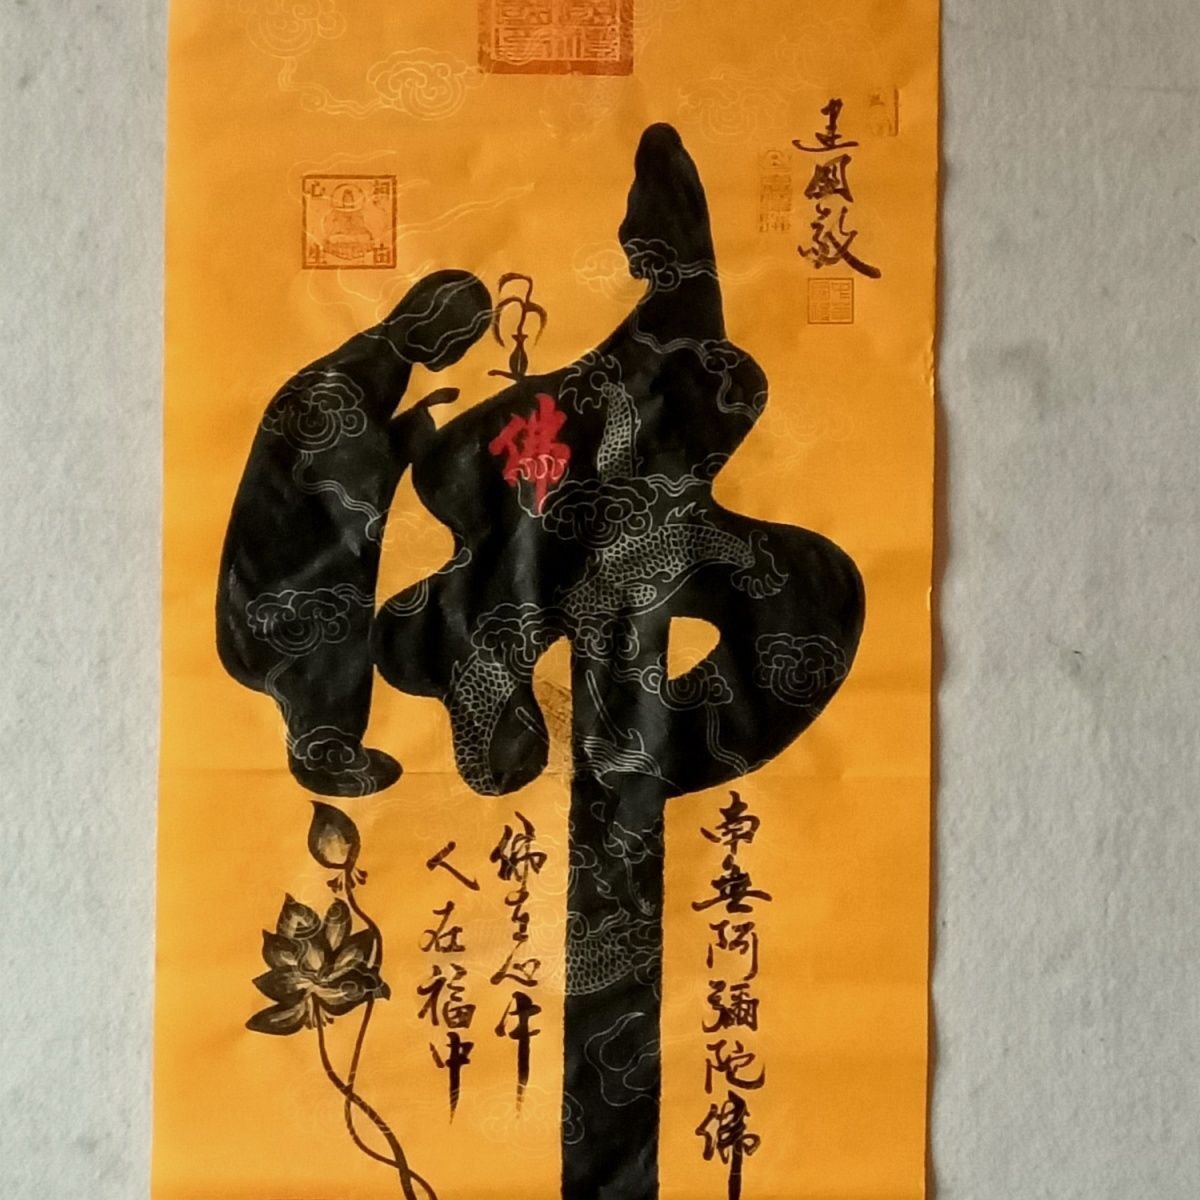 建國敬
相由心生
佛
佛
南無阿彌陀佛
佛在心中
人在福中